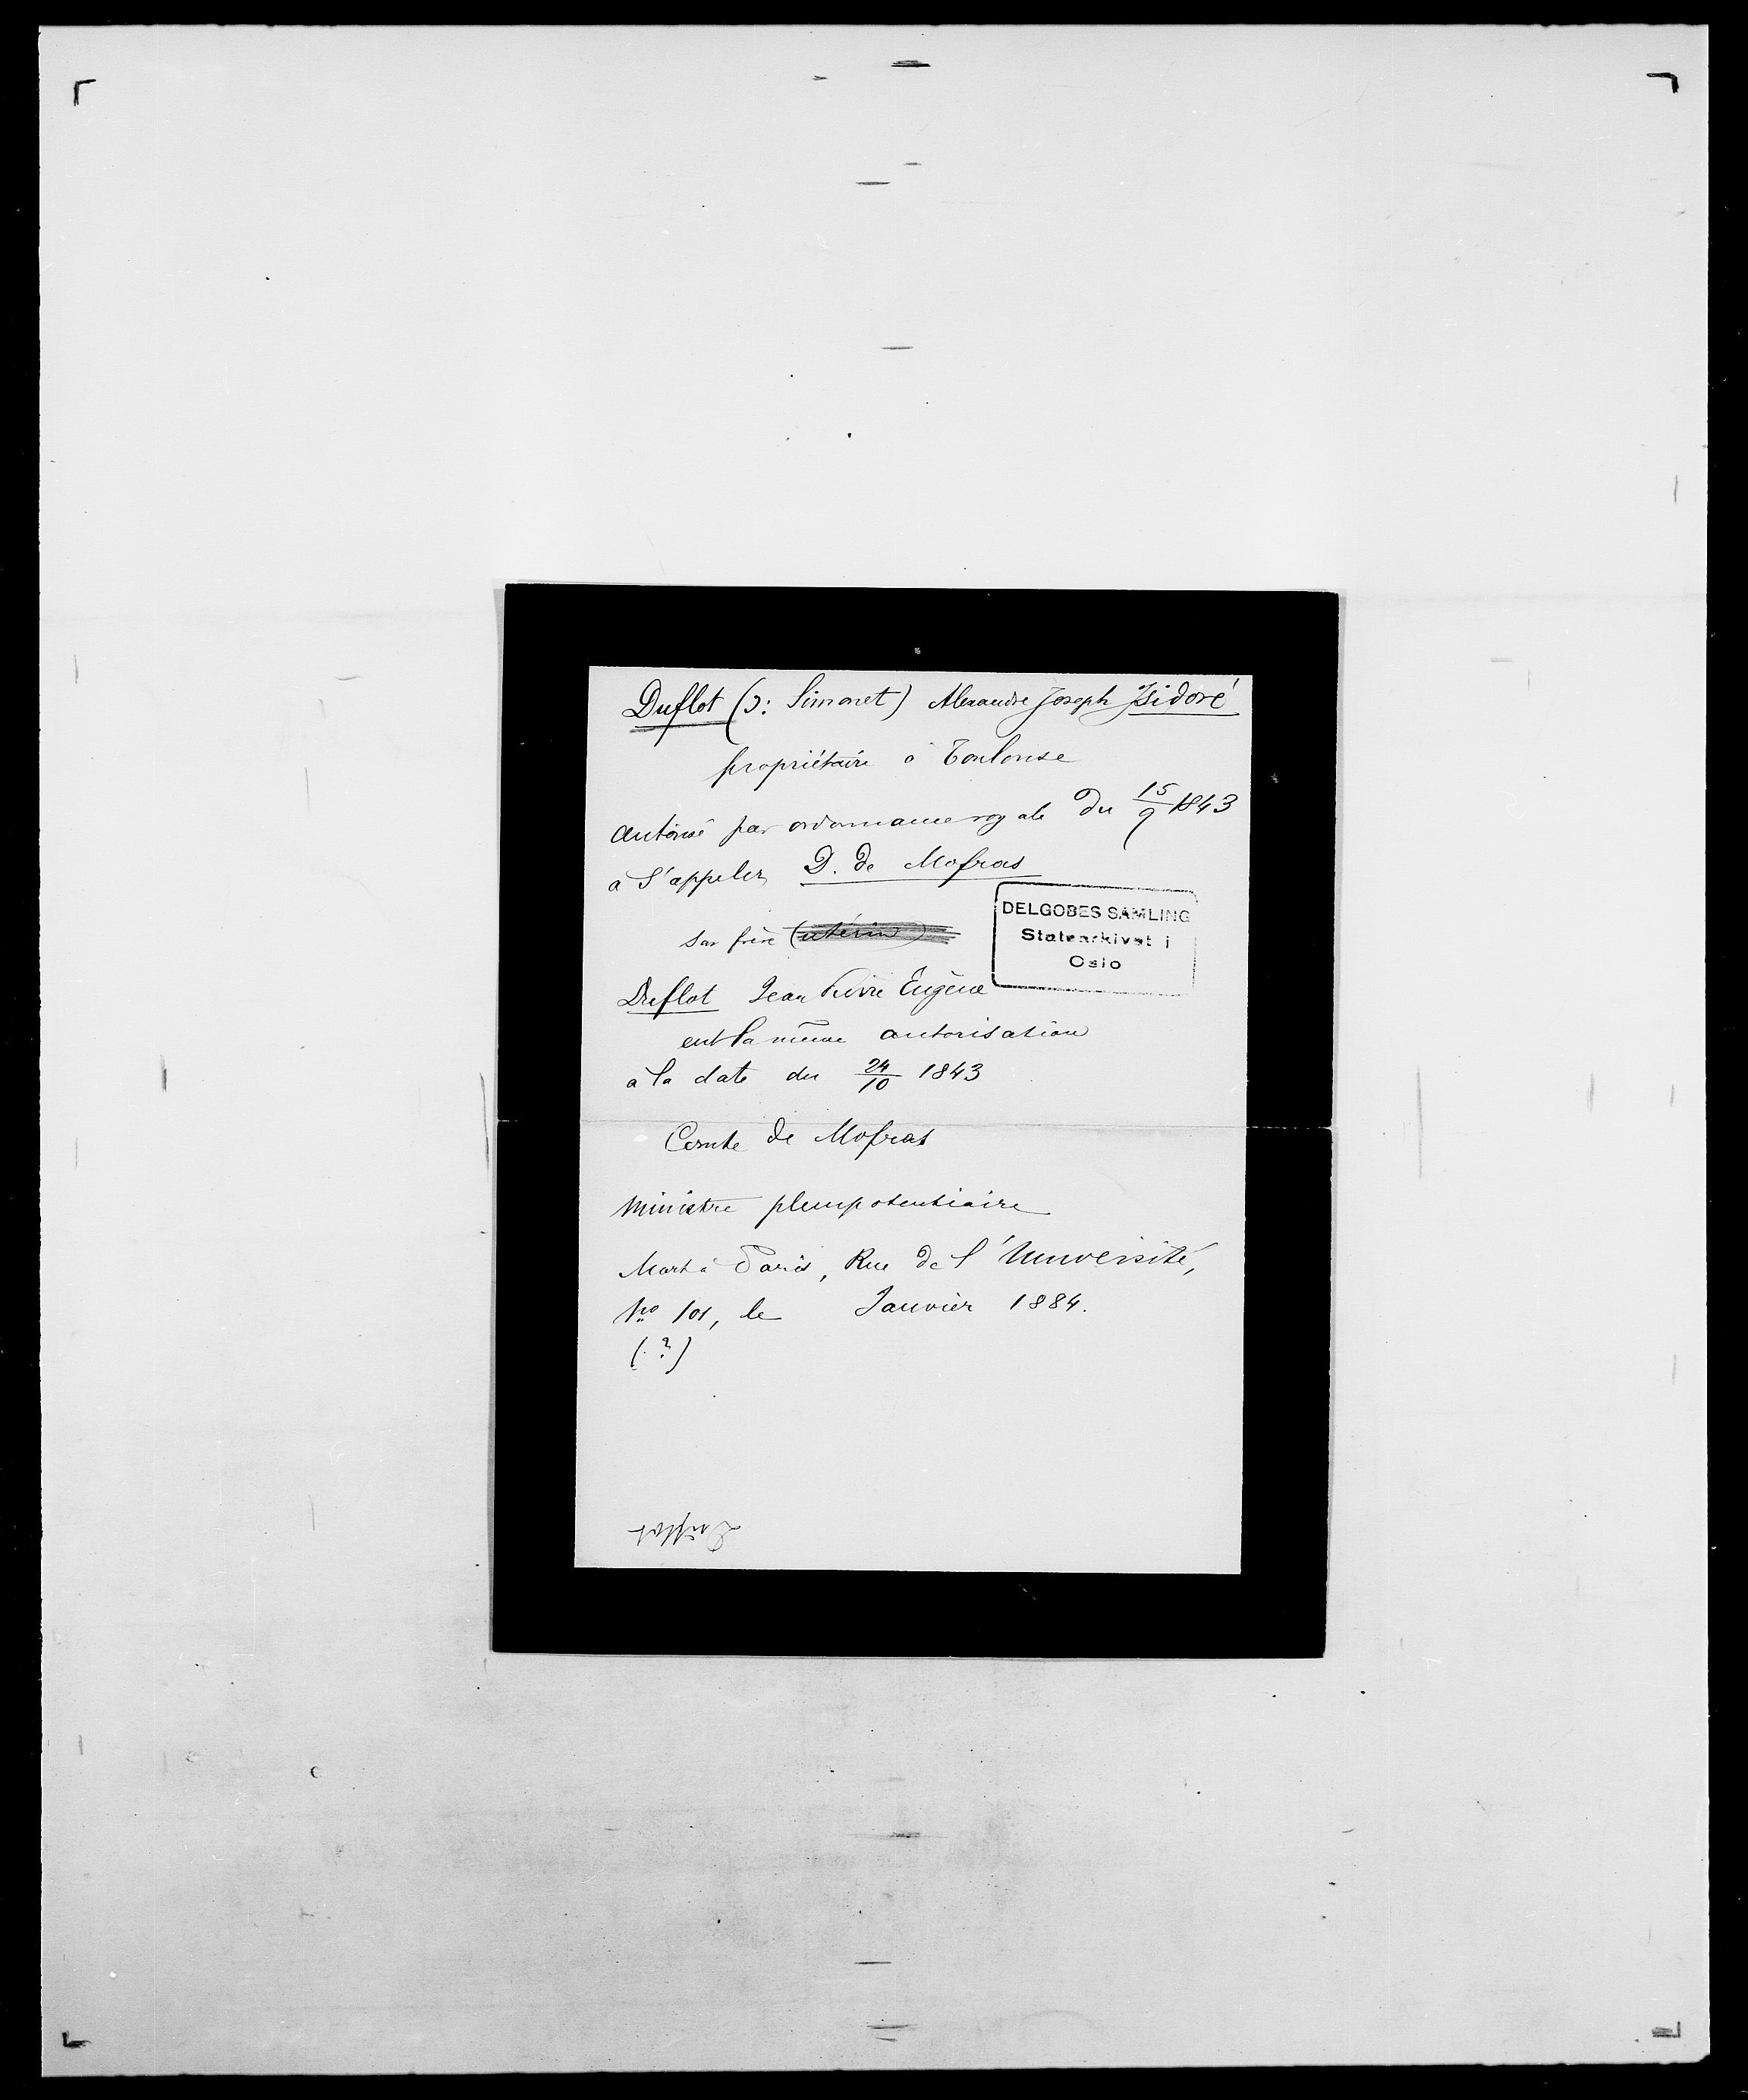 Duflot (ɔ: Simonet) Alexandre Joseph Isidore
propriétaire à Toulouse
autorisé par ordonnance royale du 15/9 1843
à s'appeler D. de Mofras
son frère (utérin)
DELGOBES SAMLING
Statsarkivet i
Oslo
Duflot Jean Pierre Eugène
eut la même autorisation
à la date du 24/10 1843
Comte de Mofras
Ministre plenipotentiaire
Mort à Paris, Rue de l'Université,
No 101, le Janvier 1884.
(?)
Duflot